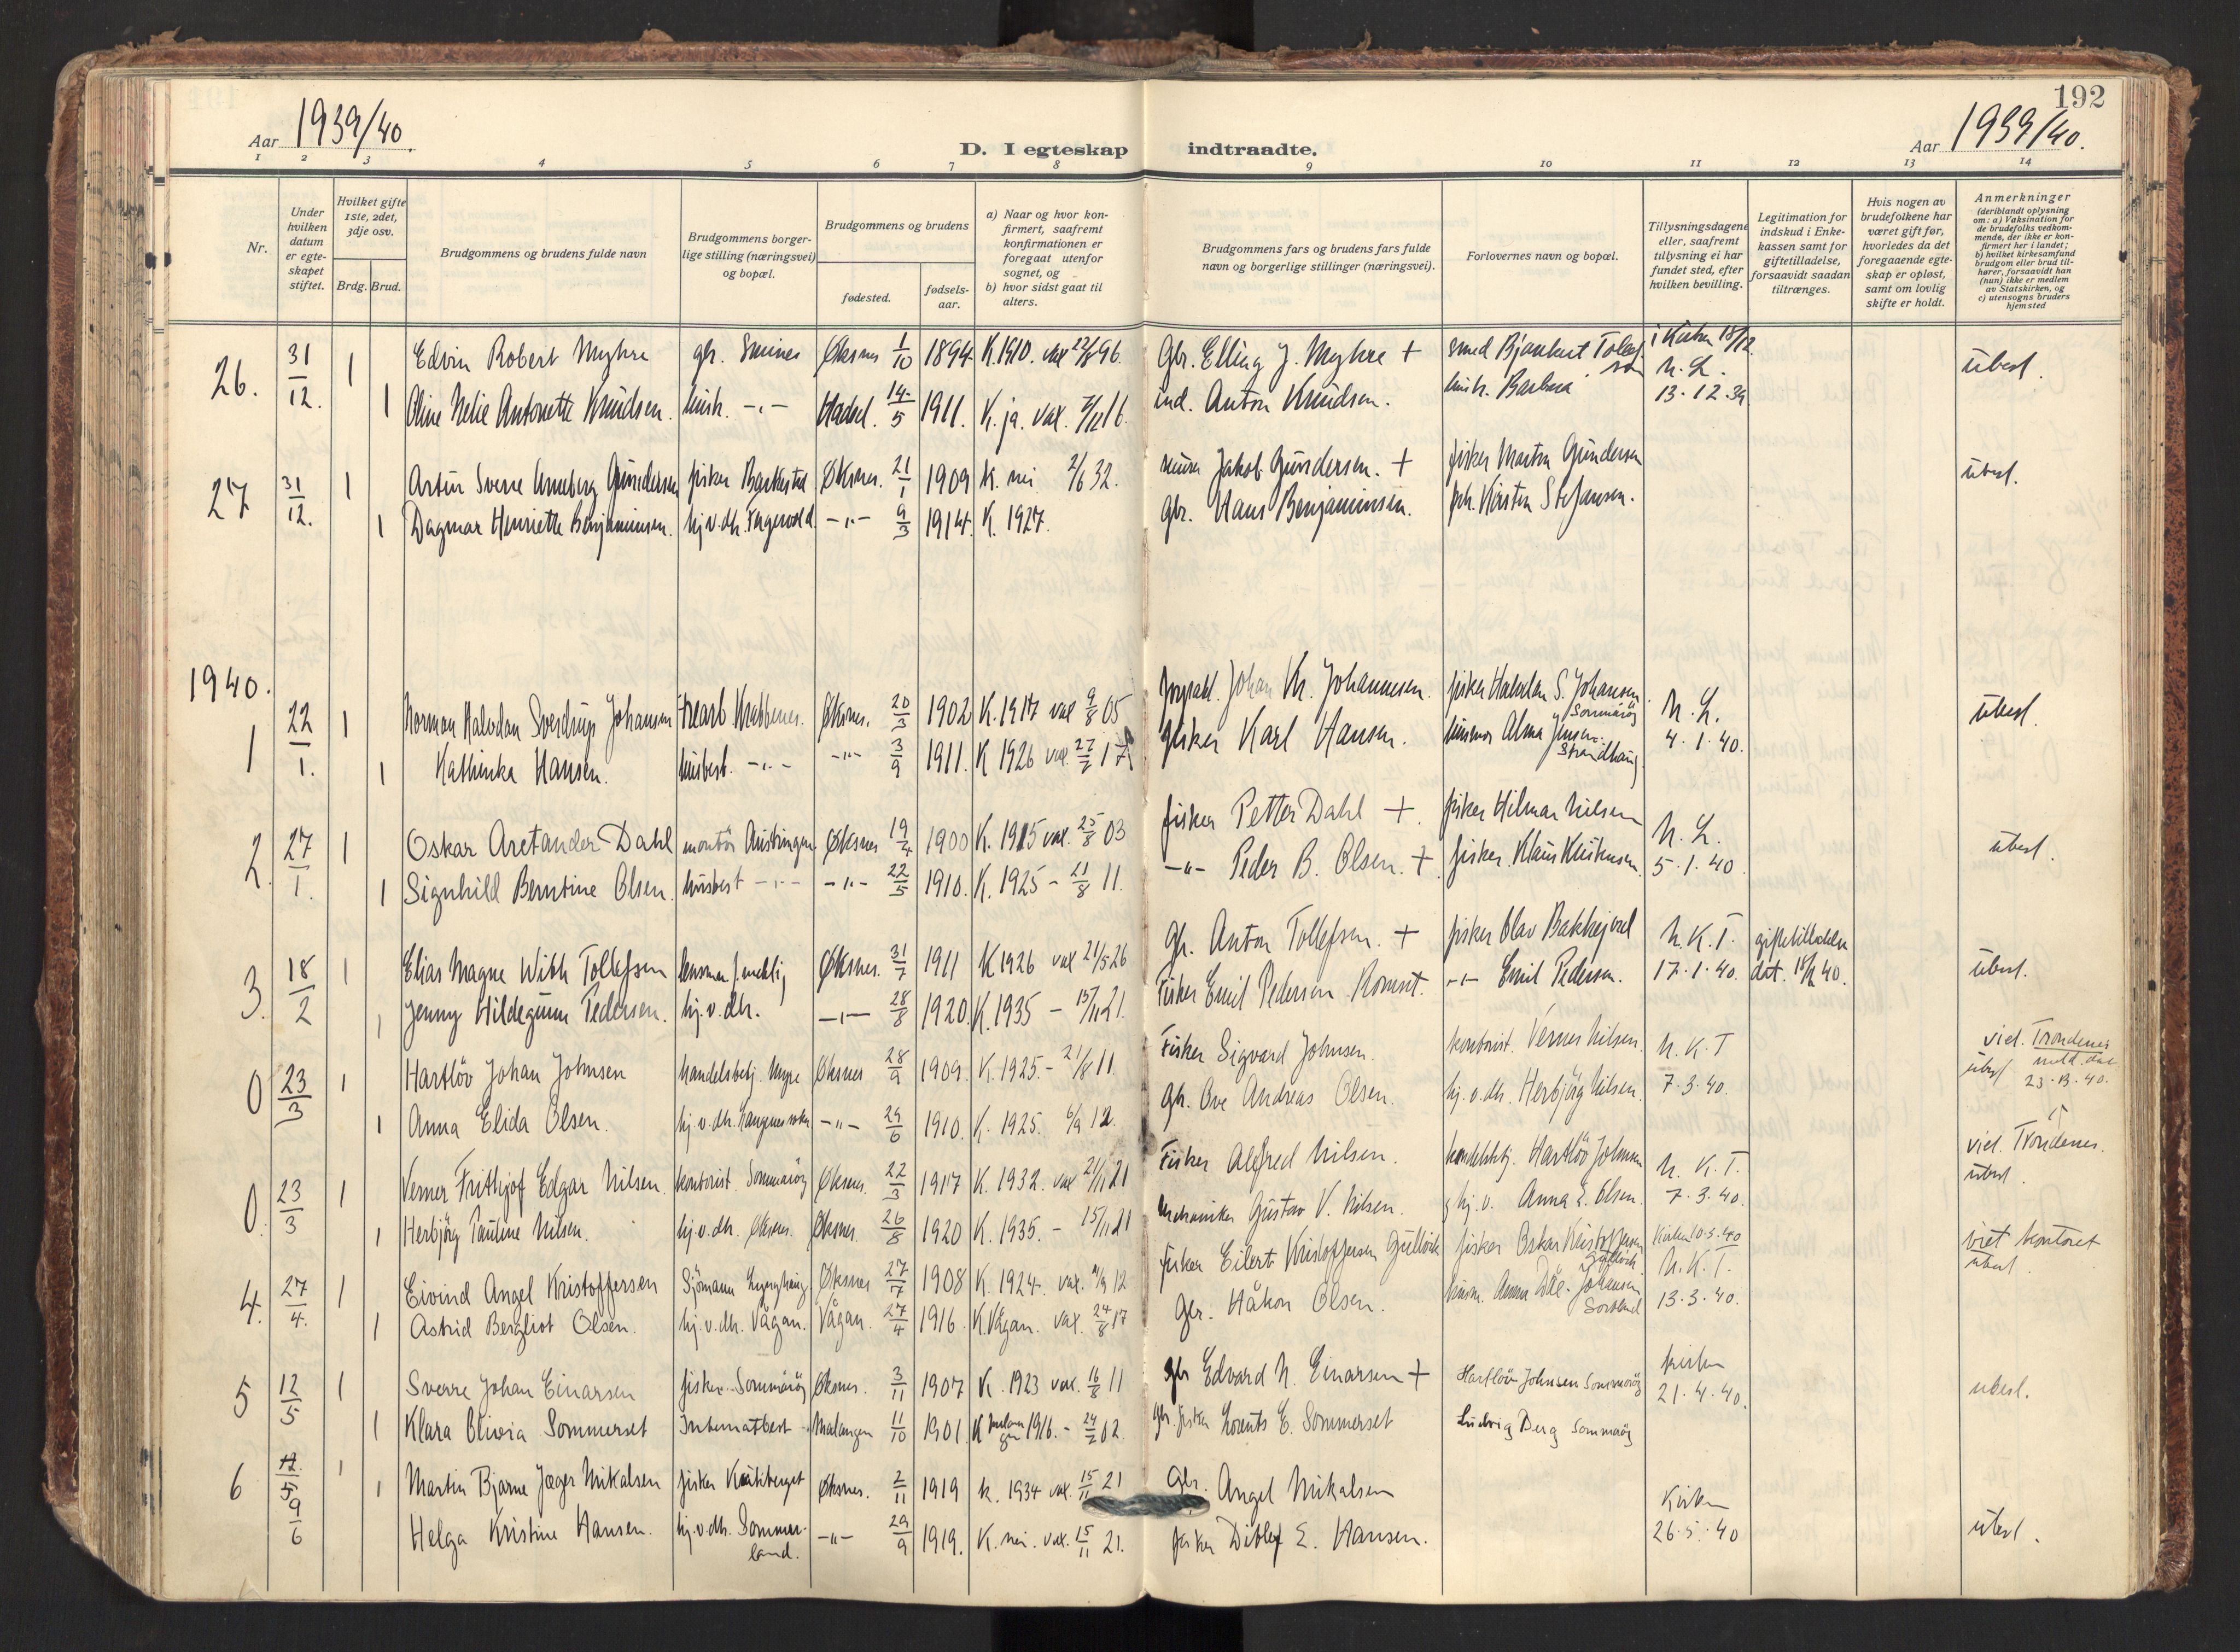 192
Aar 1939/40.
D. I egteskap indtraadte.
Aar 1939/40.
1 2 3 4 5 6 7 8 9 10 11 12 13 14
Nr.
Under hvilken datum er egteskapet stiftet.
Hvilket gifte 1ste, 2det, 3dje osv.
Brdg. Brud.
Brudgommens og brudens fulde navn
Brudgommens borgerlige stilling (næringsvei) og bopæl.
Brudgommens og brudens
fødested.
fødselsaar.
a) Naar og hvor konfirmert, saafremt konfirmationen er foregaat utenfor sognet, og
b) hvor sidst gaat til alters.
Brudgommens fars og brudens fars fulde navn og borgerlige stillinger (næringsvei).
Forlovernes navn og bopæl.
Tillysningsdagene eller, saafremt tillysning ei har fundet sted, efter hvilken bevilling.
Legitimation for indskud i Enkekassen samt for giftetilladelse, forsaavidt saadan tiltrænges.
Hvis nogen av brudefolkene har været gift før, hvorledes da det foregaaende egteskap er opløst, samt om lovlig skifte er holdt.
Anmerkninger
(deriblandt oplysning om: a) Vaksination for de brudefolks vedkommende, der ikke er konfirmert her i landet;
b) hvilket kirkesamfund brudgom eller brud tilhører, forsaavidt han (hun) ikke er medlem av Statskirken, og
c) utensogns bruders hjemsted
26. 31/12. 1 Edvin Robert Myhre gbr. Smines Øksnes 1/10 1894. K. 1910. vax 22/8 96. Gbr. Elling J. Myhre + smed Bjankert Tollefson i Kirken 18/12. ubesl.
1 Oline Nelie Antonette Knudsen. hush. -"- Hadsel. 14/5 1911. K. ja. vax. 7/11 16 ind. Anton Knudsen. hush. Barbra N. L. 13.12.39
27 31/12. 1 Artur Sverre Arneberg Gundersen fisker Barkestad Øksnes. 21/1 1909 K. nei 2/6 32. murer Jakob Gundersen. + fisker Martin Gundersen ubesl.
1 Dagmar Henriette Benjaminsen. hj.v.dh. Fagervold -"- 9/3 1914. K. 1927. gbr. Hans Benjaminsen. frk. Kirsten Stefansen.
1940.
1 22/1. 1 Norman Halvdan Sverdrup Johansen trearb. Krabbenes. Øksnes. 20/3 1902 K. 1917 vax 9/8 05 forpakt. Johan Kr. Johannesen. fisker Halvdan S. Johansen Sommarøy N. L. ubesl.
1 Kathinka Hansen. husbest. -"- -"- 3/9 1911. K 1926 vax. 27/8 17 fisker Karl Hansen. husmor Alma Jensen. Strandhaug 4.1.40.
2. 27/1. 1 Oskar Aretander Dahl montør Austringen Øksnes 19/4 1900 K. 1915 vax. 25/8 03 fisker Petter Dahl +. fisker Hilmar Nilsen N. L. ubesl.
1 Signhild Berntine Olsen. husbest -"- -"- 22/5 1910. K. 1925 - 21/8 11. -"- Peder B. Olsen. +. fisker Klaus 5.1.40
3. 18/2 1 Elias Magne Wibh Tollefsen lensman Øksnes. 31/7 1911 K 1926 vax 21/5 26 Gbr. Anton Tollefsen. + fisker Olav Bakkejord N. K. T. giftetilladelse ubesl.
1 Jenny Hildegunn Pedersen. hj.v.dh. -"- 28/8 1920. K. 1935 - 15/11 21. Fisker Emil Pedersen Romset. -"- Emil Pedersen. 17.1.40. dat. 18/1 40.
0 23/3 1 Hartløv Johan Johnsen handelsbetj. Myre Øksnes 28/9 1909. K. 1925. - 21/8 11 Fisker Sigvard Johnsen. kontorist. Verner Nilsen. N. K. T viet. Trondenes
1 Anna Elida Olsen. hj.v.dh. -"- 29/6 1910. K. 1925. 6/9 12. Gbr. Ove Andreas Olsen. hj.v.dh. Herbjörg Nilsen. 7.3.40. ubesl. 23.3.40.
0. 23/3 1 Verner Frithjof Edgar Nilsen. kontorist. Sommarøy Øksnes. 22/3 1917 K. 1932. vax 21/11 21 Fisker Alfred Nilsen. handelsbetj. Hartløv Johnsen N. K. T. viet. Trondenes.
1 Herbjörg Pauline Nilsen. hj.v.dh. Øksnes. Øksnes. 26/8 1920 K. 1935. - 15/11 21 Mekaniker Gustav V. Nilsen. hj.v. Anna E. Olsen. 7.3.40 ubesl.
4. 27/4. 1 Eivind Angel Kristoffersen Sjömann Øksnes 27/7 1908 K. 1924. vax. 4/9 12 fisker Eilert Kristoffersen Gulloik fisker Oskar Kristoffersen Kirken 10.3.40 N. K. T. viet kontoret ubesl.
1 Astrid Bergliot Olsen. hj.v.dh. Vågan. Vågan. 27/4 1916. K. Vågan. vax. 24/8 17 Gbr. Håkon Olsen. husm. Anna Johansen Sortland 13.3.40.
5 12/5 1 Sverre Johan Einarsen fisker Sommarøy Øksnes. 3/11 1907 K. 1923 vax. 16/8 11 gbr Edvard N. Einarsen + Hartløv Johnsen Sommarøy kirken 21.4.40. ubesl.
1 Klara Olivia Sommerset Internatbest. Malangen 11/10 1901. K Malangen 1916. - 24/2 02 gbr. fisker Lorents E. Sommerset Ludvig Berg Sommarøy
6 12/5 9/6 1 Martin Bjarne Jæger Mikalsen fisker Kråkberget Øksnes. 2/11 1919 k. 1934 vax. 15/11 21 Gbr. Angel Mikalsen Kirken
1 Helga Kristine Hansen. hj.v.dh. Sommerland. -"- 29/9 1919. K. nei. vax. 15/11 21. fisker Ditlef E. Hansen. 26.5.40 ubesl.